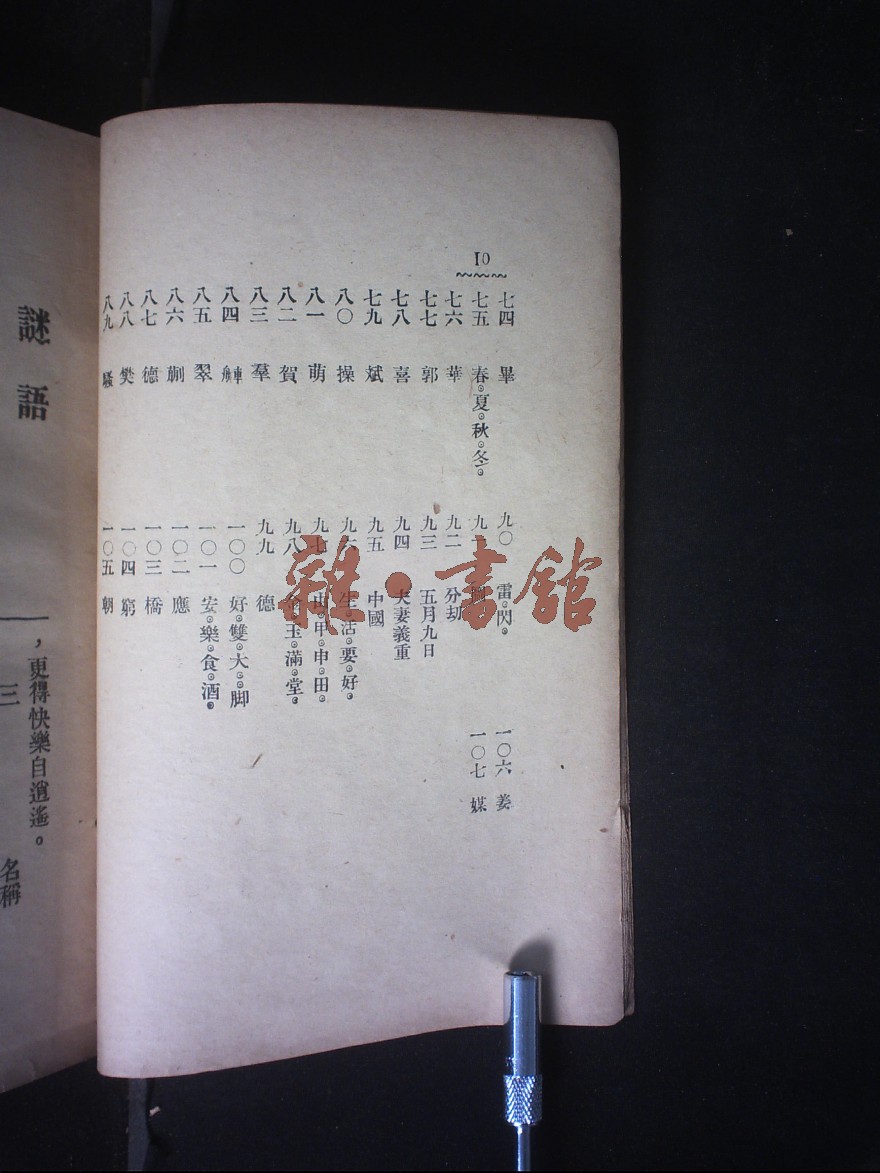 10
七四 畢
七五 春。夏。秋。冬。
七六 華
七七 郭
七八 喜
七九 斌
八〇 操
八一 萌
八二 賀
八三 羣
八四
八五 翠
八六 蒯
八七 德
八八 樊
八九 騷
九〇 雷。閃。
九
九二 分劫
九三 五月九日
九四 夫妻義重
九五 中國
九六 生。活。要。好。
九七 由。甲。申。田。
九八 金。玉。滿。堂。
九九 德
一〇〇 好。雙。大。脚
一〇一 安。樂。食。酒。
一〇二 應
一〇三 橋
一〇四 窮
一〇五 朝
一〇六 姜
一〇七 媒
雜·書館
，更得快樂自逍遙。
三 名稱
謎語